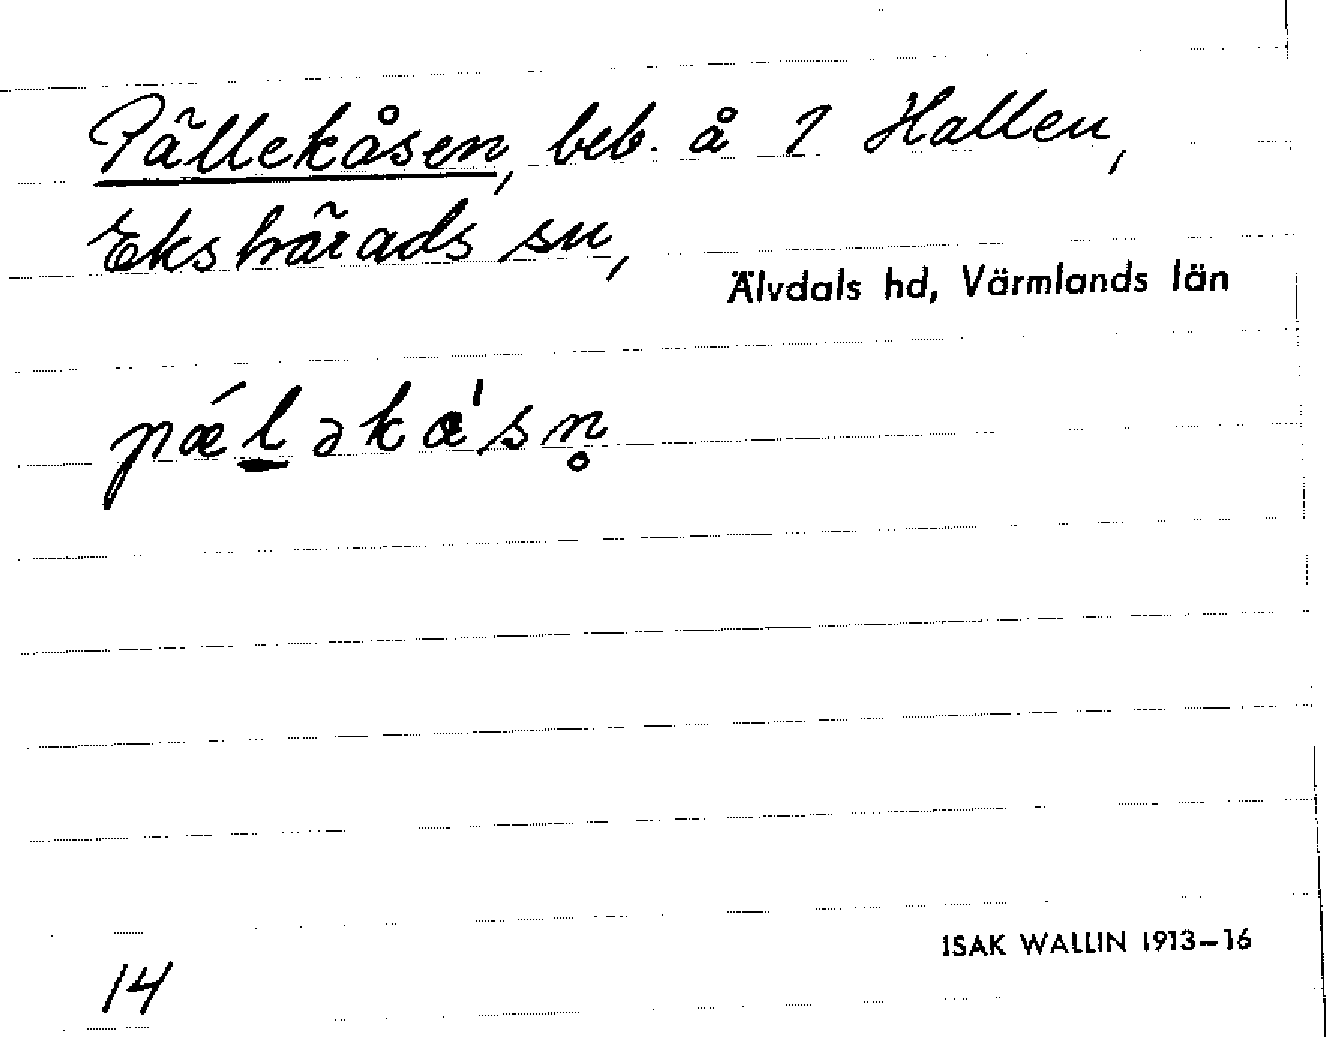 Pällekåsen, beb. å 1 Hallen,
Ekshärads sn,
Älvdals hd, Värmlands län
pǽl̲əkɑ'sn̥
ISAK WALLIN 1913–16
14